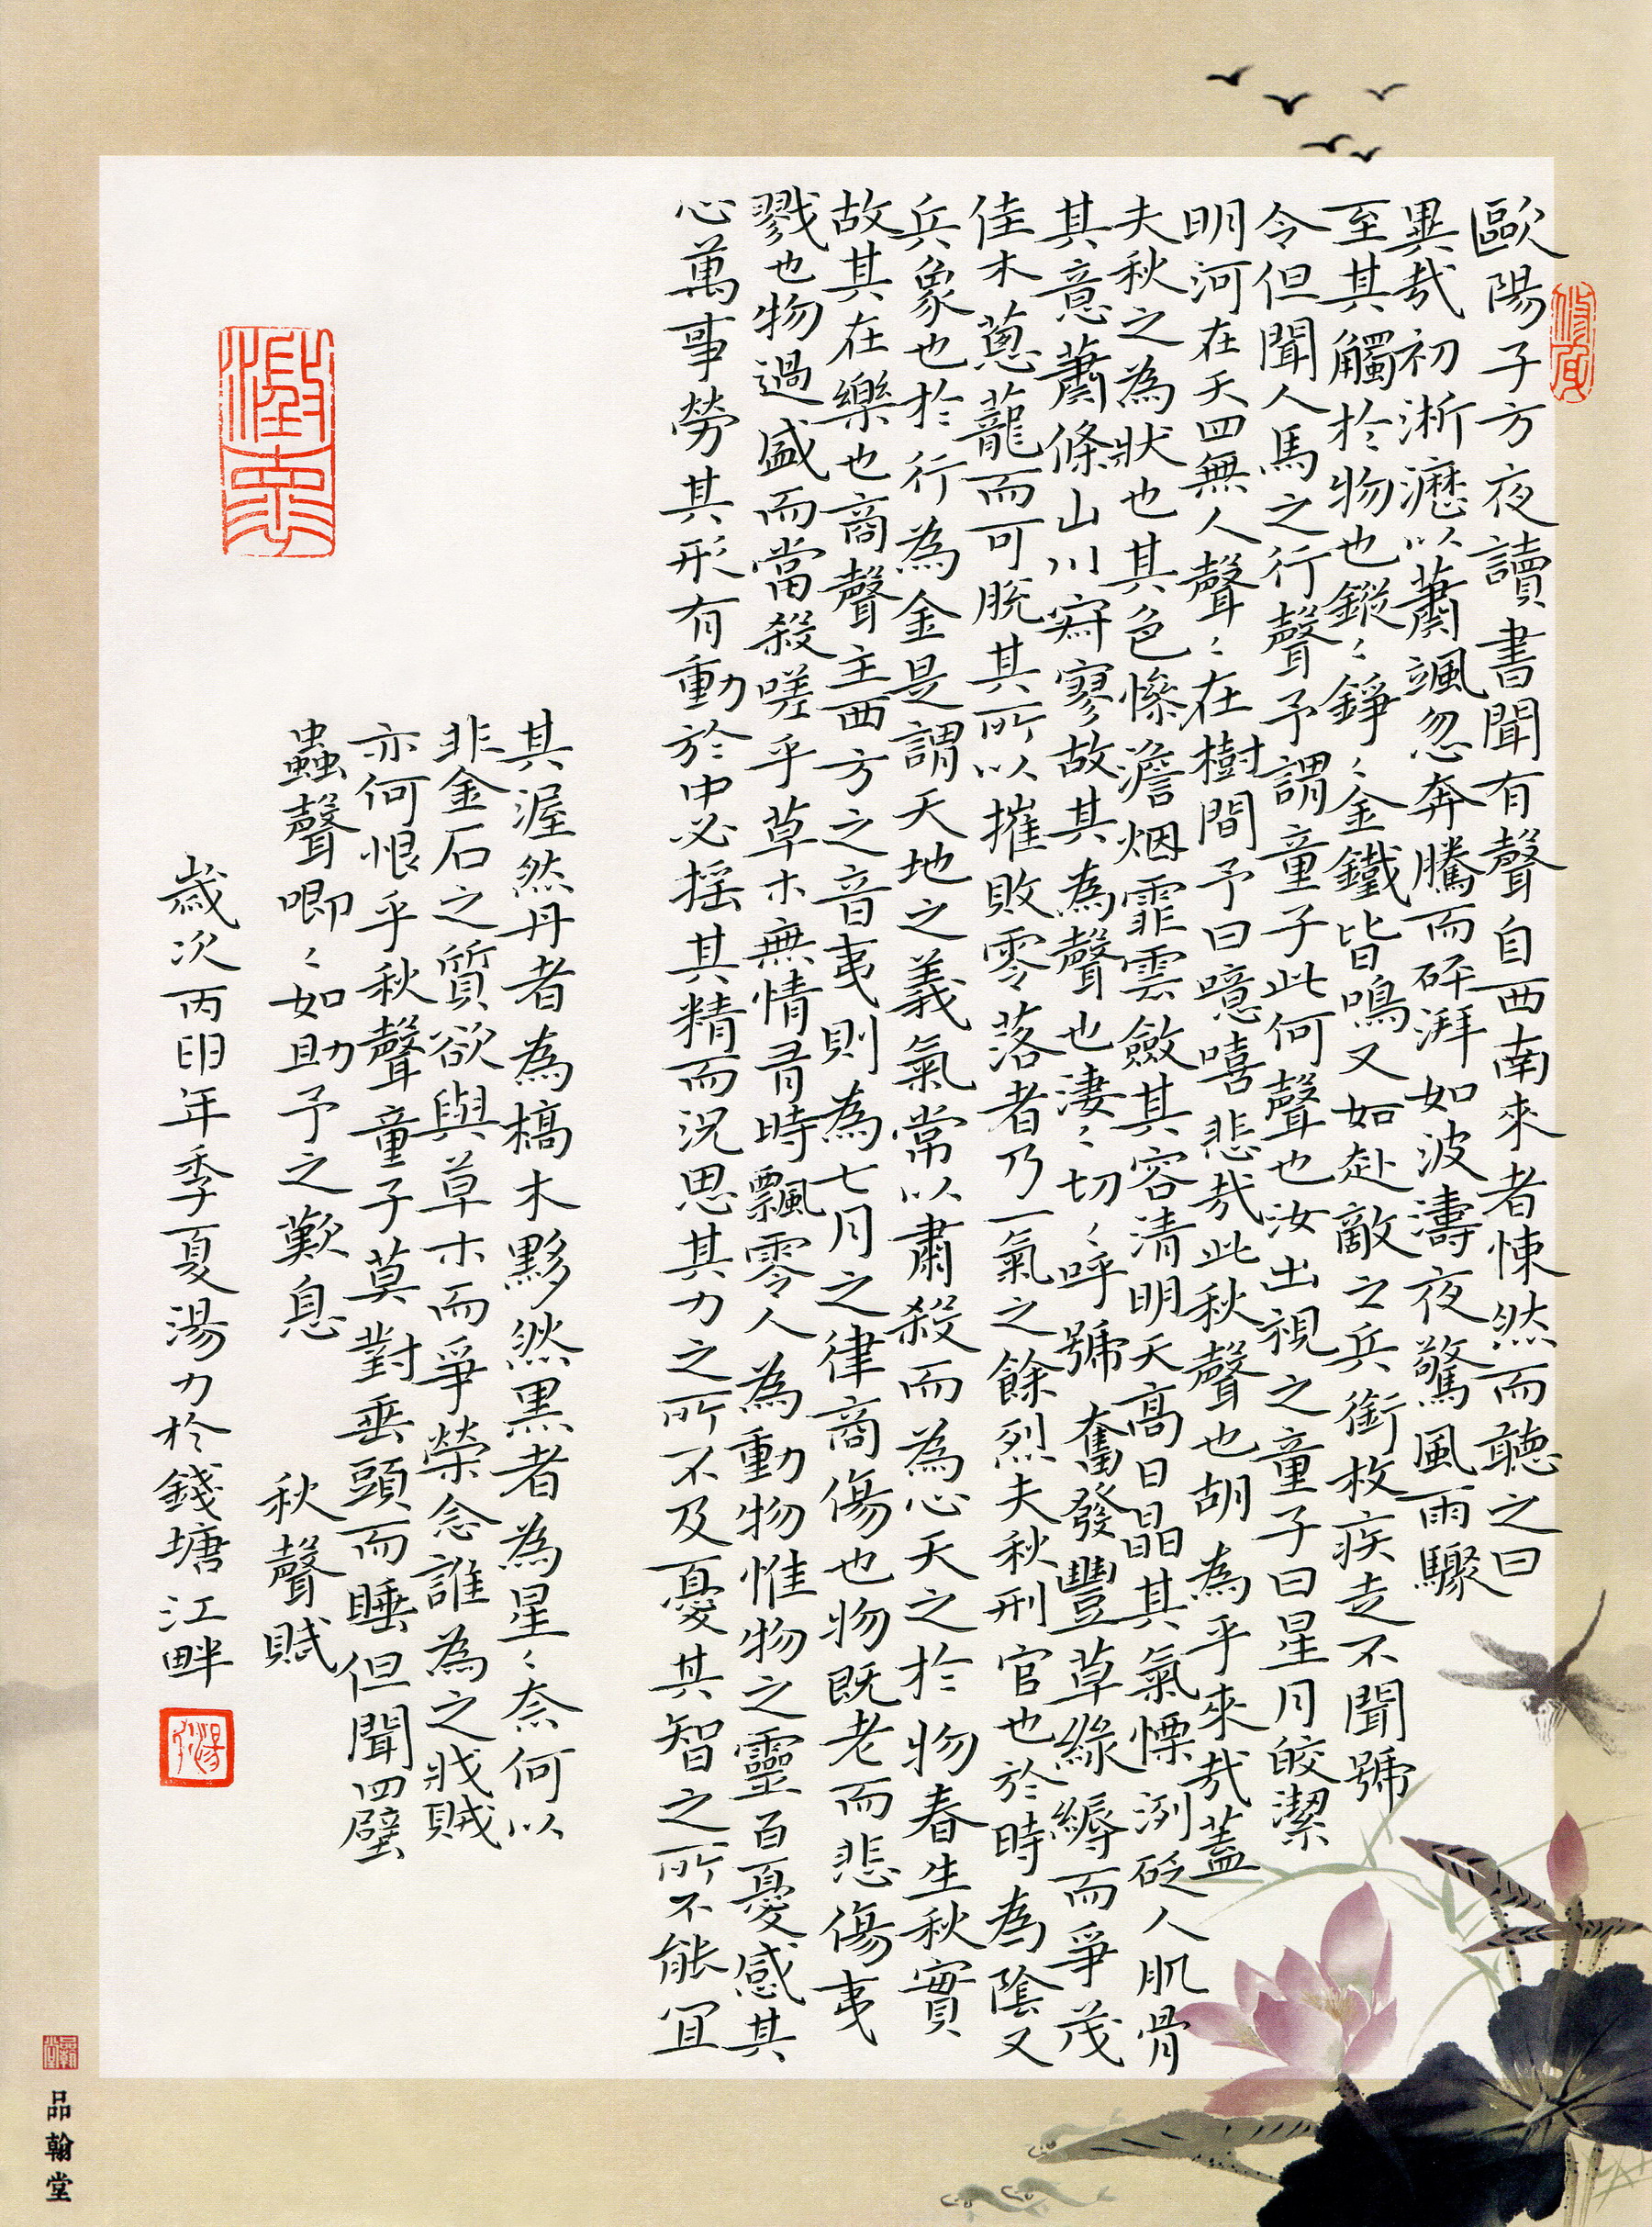 歐陽子方夜讀書聞有聲自西南來者悚然而聽之曰
異哉初淅瀝以蕭颯忽奔騰而砰湃如波濤夜驚風雨驟
至其觸於物也鏦〻錚〻金鐵皆鳴又如赴敵之兵銜枚疾走不聞號
令但聞人馬之行聲予謂童子此何聲也汝出視之童子曰星月皎潔
明河在天四無人聲〻在樹間予曰噫嘻悲哉此秋聲也胡為乎來哉蓋
夫秋之為狀也其色慘澹烟霏雲斂其容清明天高日晶其氣慄洌砭人肌骨
其意蕭條山川寂寥故其為聲也淒〻切〻呼號奮發豐草綠縟而爭茂
佳木蔥蘢而可脫其所以摧敗零落者乃一氣之餘烈夫秋刑官也於時為陰又
兵象也於行為金是謂天地之義氣常以肅殺而為心天之於物春生秋實
故其在樂也商聲主西方之音夷則為七月之律商傷也物既老而悲傷夷
戮也物過盛而當殺嗟乎草木無情有時飄零人為動物惟物之靈百憂感其
心萬事勞其形有動於中必搖其精而況思其力之所不及憂其智之所不能宜
其渥然丹者為槁木黟然黑者為星〻奈何以
非金石之質欲與草木而爭榮念誰為之戕賊
亦何恨乎秋聲童子莫對垂頭而睡但聞四壁
蟲聲唧〻如助予之歎息 秋聲賦
歲次丙申年季夏湯力於錢塘江畔
品翰堂